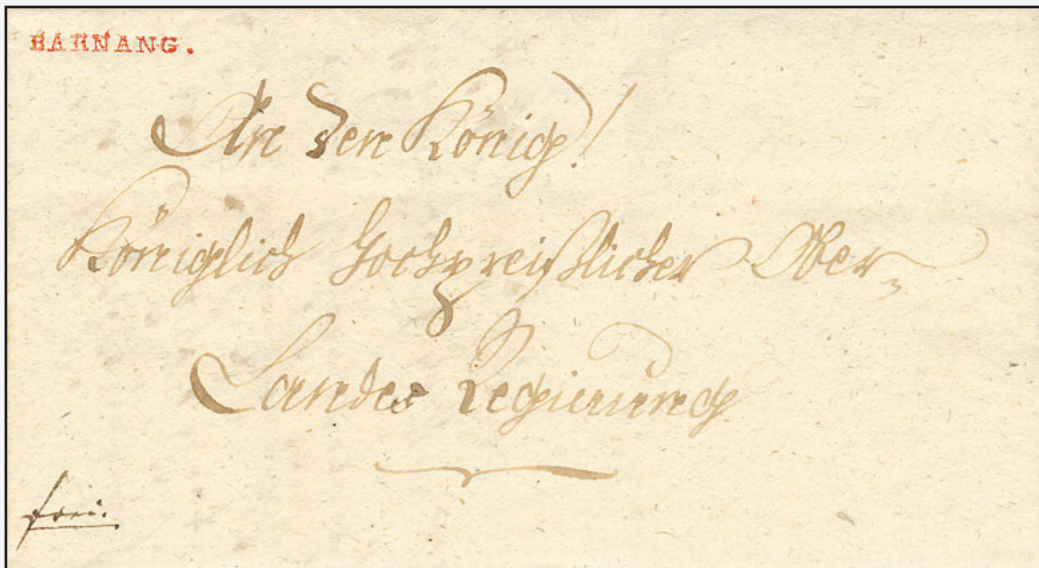 BAKNANG.
An den König!
Königlich Hochpreißlicher Ober=
Landes Regierung
frei.